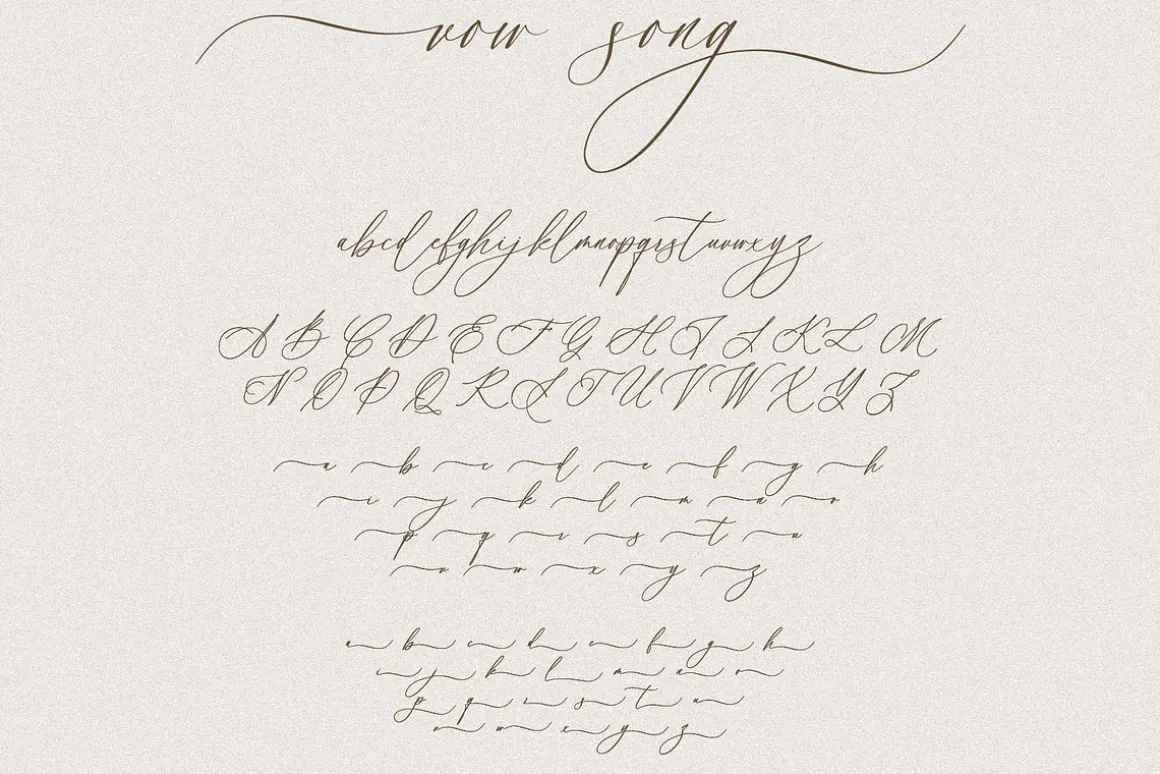 vow song
abcdefghijklmnopqrstuvwxyz
A B C D E F G H I J K L M
N O P Q R S T U V W X Y Z
a b c d e f g h
i j k l m n o
p q r s t u
v w x y z
a b c d e f g h
i j k l m n o
p q r s t u
v w x y z